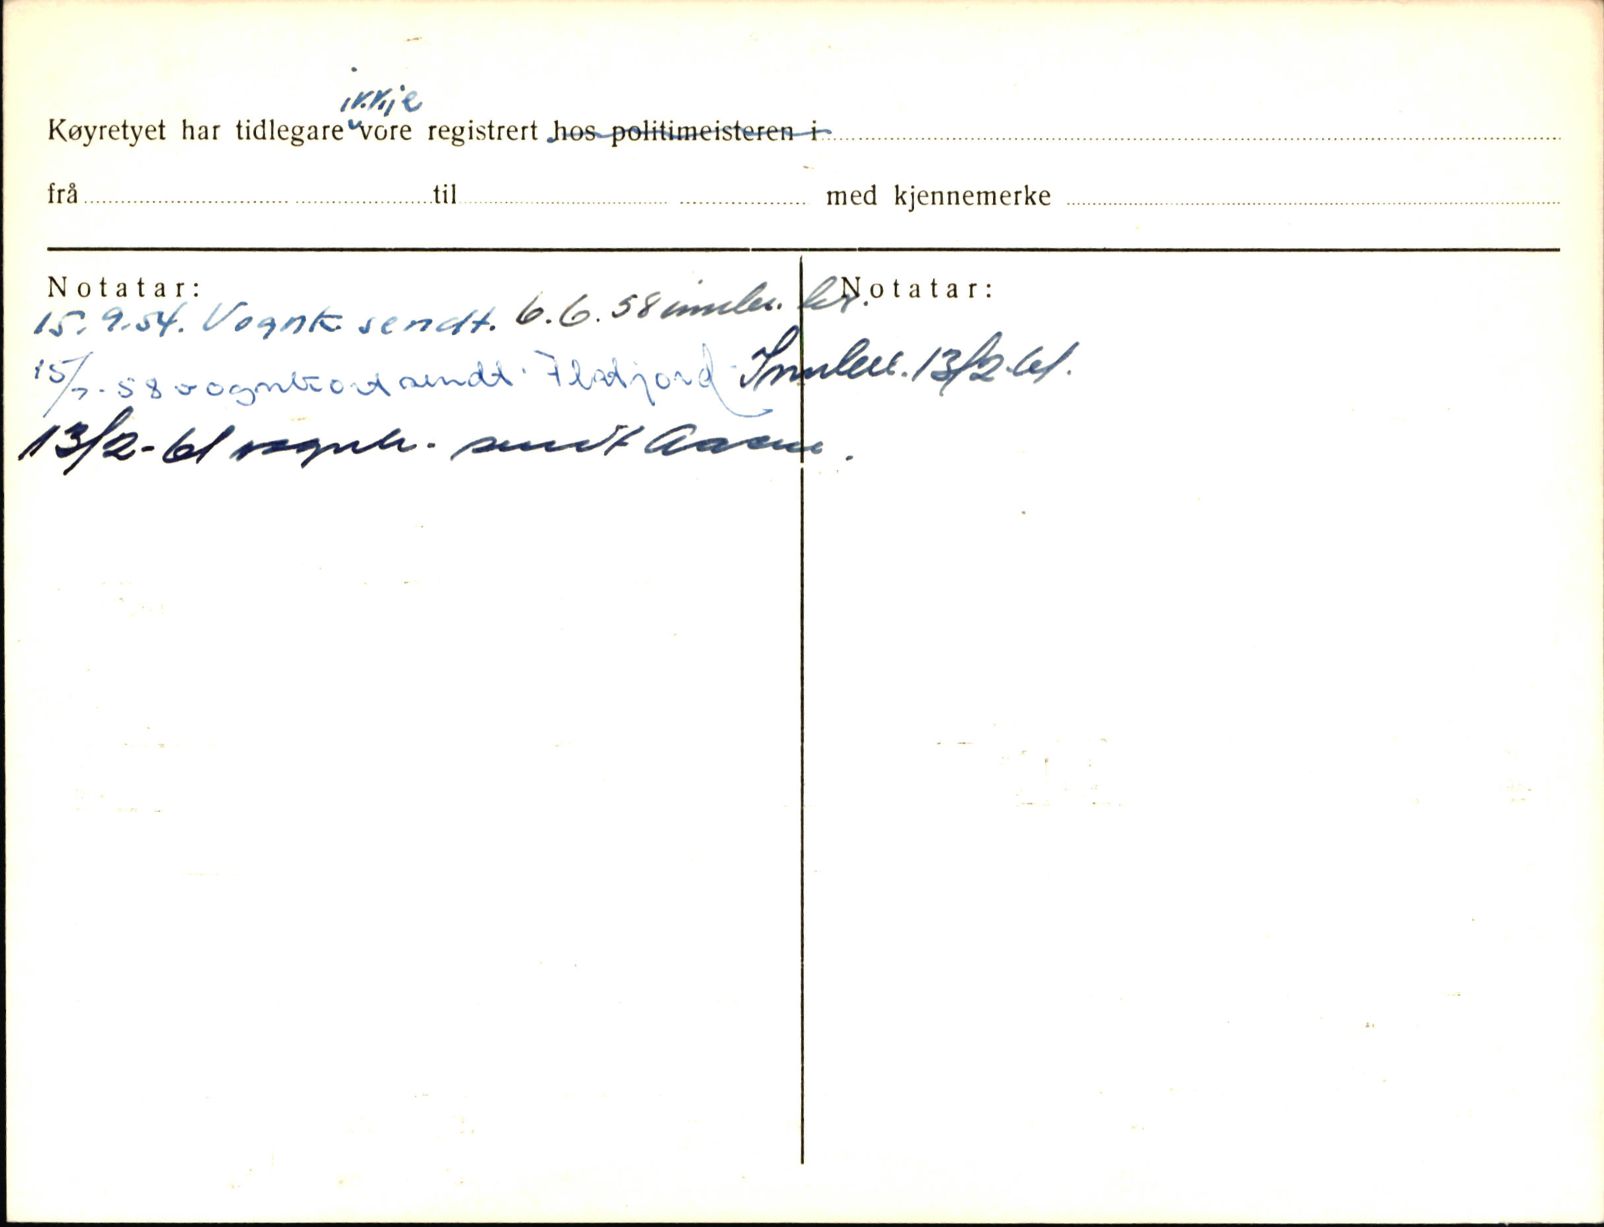 ikkje
Køyretyet har tidlegare vore registrert hos politimeisteren i
frå til med kjennemerke
Notatar: Notatar:
15.9.54. Vognk sendt. 6.6.58 innlev. kr.
15/7-58 vognkort sendt Flatjord Innlev. 13/2-61.
13/2-61 vognk. sendt